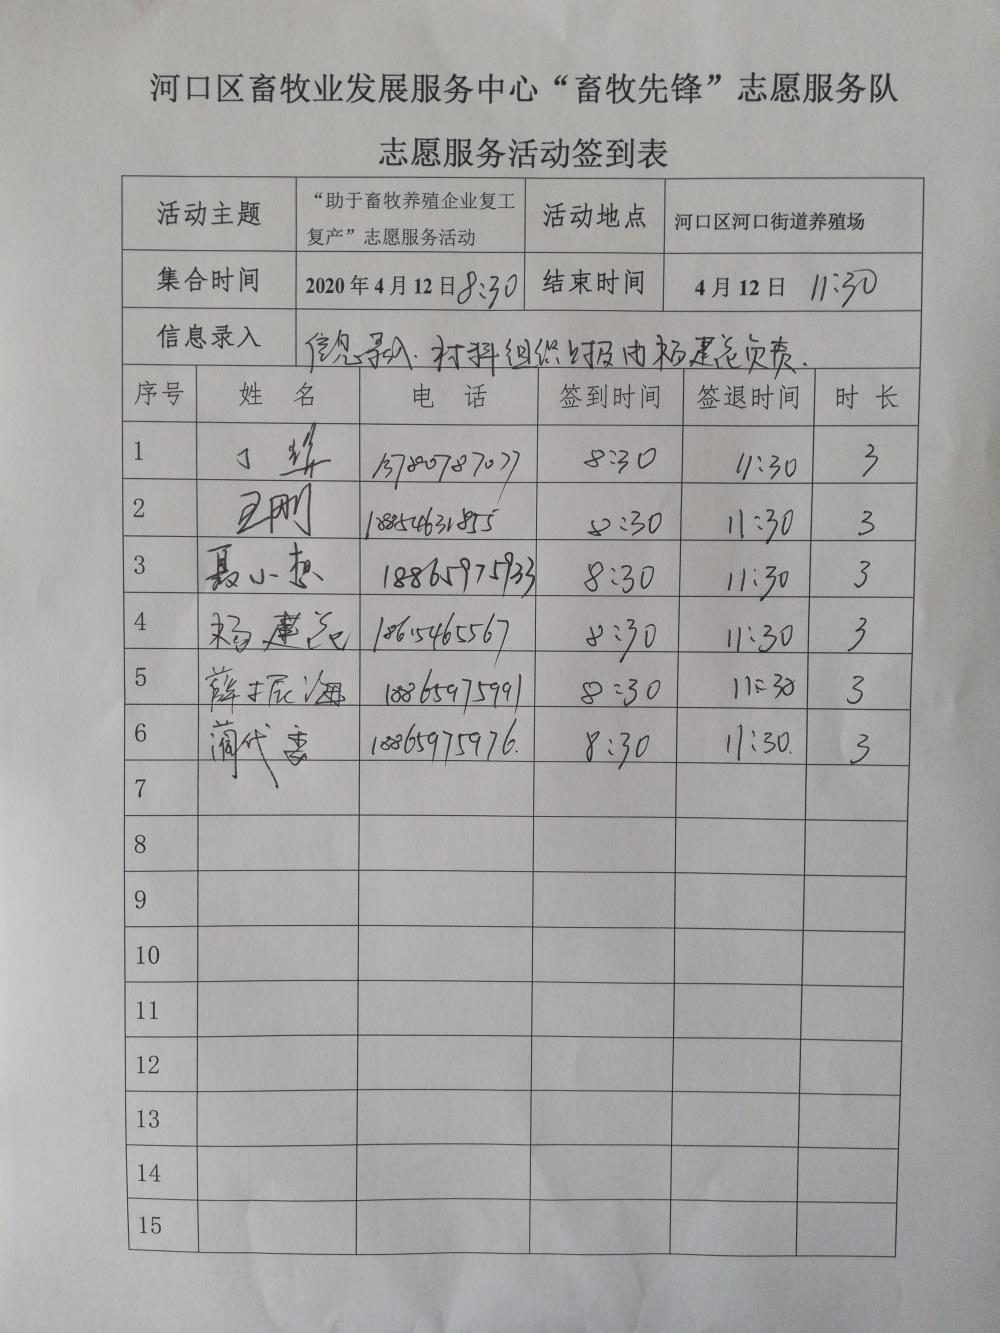 河口区畜牧业发展服务中心“畜牧先锋”志愿服务队
志愿服务活动签到表
活动主题 “助于畜牧养殖企业复工复产”志愿服务活动 活动地点 河口区河口街道养殖场
集合时间 2020年4月12日8:30 结束时间 4月12日 11:30
信息录入 信息录入.材料组织上报由杨建花负责.
序号 姓 名 电 话 签到时间 签退时间 时 长
1 丁 8:30 11:30 3
2 王刚 8:30 11:30 3
3 聂小想 18865975933 8:30 11:30 3
4 杨建花 18615465567 8:30 11:30 3
5 薛振海 18865975991 8:30 11:30 3
6 蔺代 18865975976. 8:30 11:30. 3
7
8
9
10
11
12
13
14
15